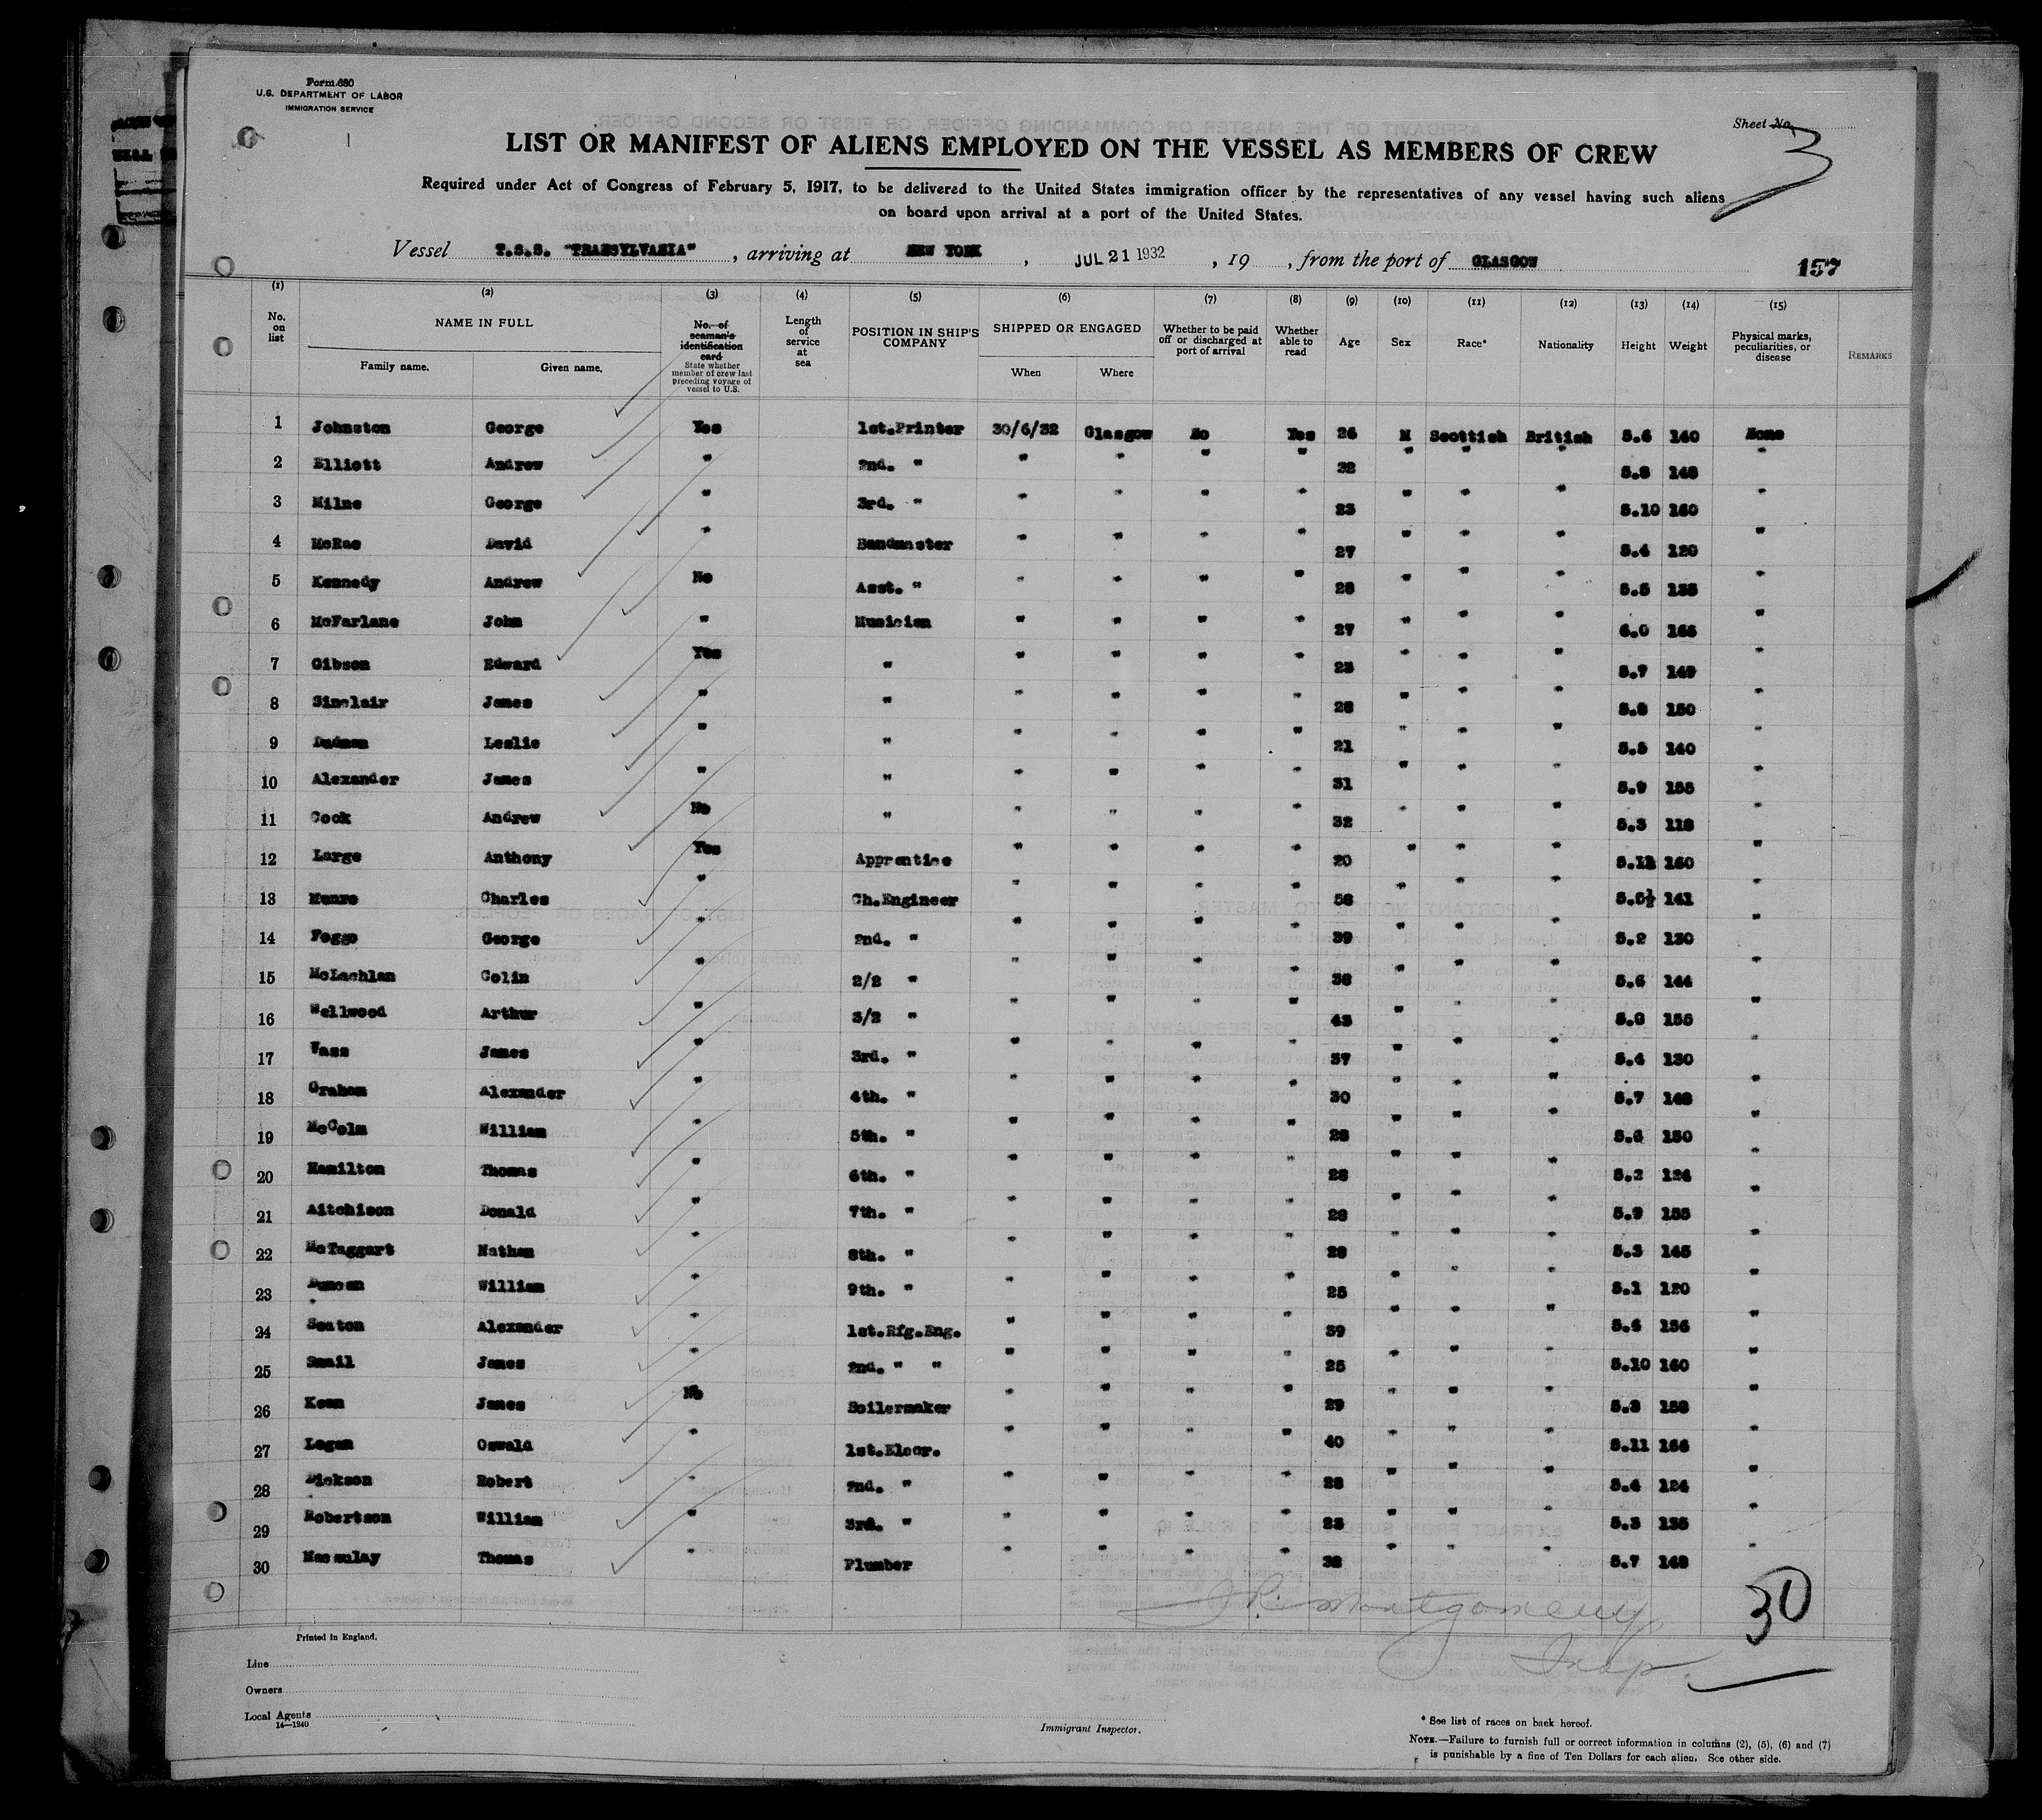 Form 680
U.S. DEPARTMENT OF LABOR
IMMIGRATION SERVICE
Sheet No. 3
LIST OR MANIFEST OF ALIENS EMPLOYED ON THE VESSEL AS MEMBERS OF CREW
Required under Act of Congress of February 5, 1917, to be delivered to the United States immigration officer by the representatives of any vessel having such aliens
on board upon arrival at a port of the United States.
Vessel T.S.S. "TRANSYLVANIA", arriving at NEW YORK, JUL 21 1932, 19 , from the port of GLASGOW 157
(1) (2) (3) (4) (5) (6) (7) (8) (9) (10) (11) (12) (13) (14) (15)
No. on list NAME IN FULL Family name. Given name. No. of seaman's identification card State whether member of crew last preceding voyage of vessel to U.S. Length of service at sea POSITION IN SHIP'S COMPANY SHIPPED OR ENGAGED When Where Whether to be paid off or discharged at port of arrival Whether able to read Age Sex Race* Nationality Height Weight Physical marks, peculiarities, or disease REMARKS
1 Johnston George Yes 1st.Printer 30/6/32 Glasgow No Yes 26 M Scottish British 5.6 140 None
2 Elliott Andrew " 2nd. " " " " " 32 " " " 5.8 148 "
3 Milne George " 3rd. " " " " " 23 " " " 5.10 160 "
4 McRae David " Bandmaster " " " " 27 " " " 5.4 120 "
5 Kennedy Andrew No Asst. " " " " " 28 " " " 5.5 138 "
6 McFarlane John " Musician " " " " 27 " " " 6.0 166 "
7 Gibson Edward Yes " " " " " 23 " " " 5.7 149 "
8 Sinclair James " " " " " " 28 " " " 5.8 150 "
9 Dudman Leslie " " " " " " 21 " " " 5.5 140 "
10 Alexander James " " " " " " 31 " " " 5.9 155 "
11 Cook Andrew No " " " " " 32 " " " 5.3 118 "
12 Large Anthony Yes Apprentice " " " " 20 " " " 5.11 160 "
13 Munro Charles " Ch.Engineer " " " " 58 " " " 5.5½ 141 "
14 Foggo George " 2nd. " " " " " 39 " " " 5.2 130 "
15 McLachlan Colin " 2/2 " " " " " 38 " " " 5.6 144 "
16 Wellwood Arthur " 3/2 " " " " " 43 " " " 5.0 155 "
17 Vass James " 3rd. " " " " " 37 " " " 5.4 130 "
18 Graham Alexander " 4th. " " " " " 30 " " " 5.7 148 "
19 McColm William " 5th. " " " " " 28 " " " 5.6 150 "
20 Hamilton Thomas " 6th. " " " " " 28 " " " 5.2 124 "
21 Aitchison Donald " 7th. " " " " " 28 " " " 5.9 155 "
22 McTaggart Nathan " 8th. " " " " " 28 " " " 5.3 145 "
23 Duncan William " 9th. " " " " " 25 " " " 5.1 120 "
24 Seaton Alexander " 1st.Rfg.Eng. " " " " 39 " " " 5.6 156 "
25 Smail James " 2nd. " " " " " " 25 " " " 5.10 160 "
26 Kean James No Boilermaker " " " " 29 " " " 5.8 158 "
27 Logan Oswald " 1st.Elecr. " " " " 40 " " " 5.11 166 "
28 Dickson Robert " 2nd. " " " " " 28 " " " 5.4 124 "
29 Robertson William " 3rd. " " " " " 23 " " " 5.3 135 "
30 Macaulay Thomas " Plumber " " " " 38 " " " 5.7 148 "
J R. Montgomery 30
Insp.
Printed in England.
Line
Owners
Local Agents
14—1240
Immigrant Inspector.
* See list of races on back hereof.
NOTE.—Failure to furnish full or correct information in columns (2), (5), (6) and (7)
is punishable by a fine of Ten Dollars for each alien. See other side.